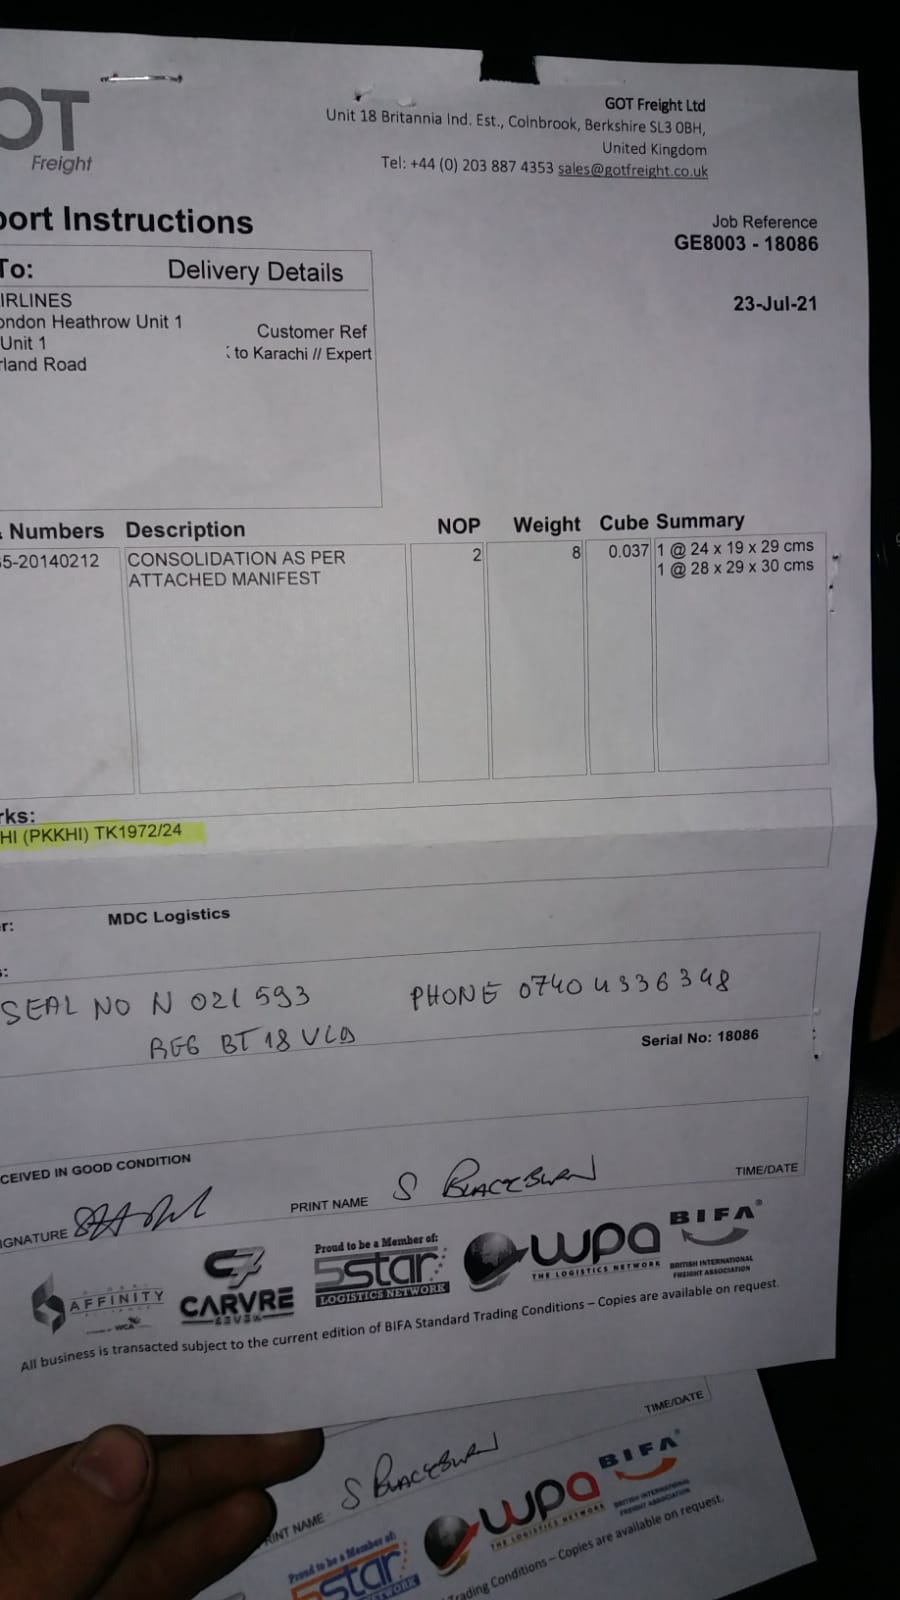 OT
Freight
GOT Freight Ltd
Unit 18 Britannia Ind. Est., Colnbrook, Berkshire SL3 0BH,
United Kingdom
Tel: +44 (0) 203 887 4353 sales@gotfreight.co.uk
port Instructions
Job Reference
GE8003 - 18086
23-Jul-21
To: Delivery Details
IRLINES
ondon Heathrow Unit 1
Unit 1
rland Road
Customer Ref
to Karachi // Expert
Numbers Description NOP Weight Cube Summary
5-20140212 CONSOLIDATION AS PER ATTACHED MANIFEST 2 8 0.037 1 @ 24 x 19 x 29 cms
1 @ 28 x 29 x 30 cms
rks:
HI (PKKHI) TK1972/24
r: MDC Logistics
s:
SEAL NO N 021 593 PHONE 07404336348
REG BT18 VLD
Serial No: 18086
CEIVED IN GOOD CONDITION
IGNATURE PRINT NAME S BLACKBURN TIME/DATE
AFFINITY
WCA
C7
CARVRE
SEVEN
Proud to be a Member of:
5star
LOGISTICS NETWORK
wpa
THE LOGISTICS NETWORK
BIFA
BRITISH INTERNATIONAL
FREIGHT ASSOCIATION
All business is transacted subject to the current edition of BIFA Standard Trading Conditions – Copies are available on request.
TIME/DATE
RINT NAME S BLACKBURN
Proud to be a Member of:
5star
NETWORK
wpa
THE LOGISTICS NETWORK
BIFA
BRITISH INTERNATIONAL
FREIGHT ASSOCIATION
Trading Conditions – Copies are available on request.